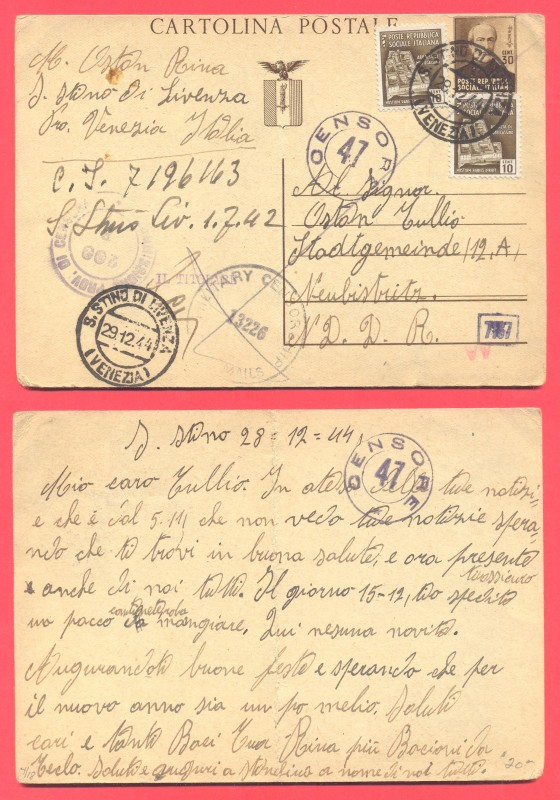 CARTOLINA POSTALE
M. Ostan Rina
S. Stino di Livenza
Pro. Venezia Italia
C. I. 7196163
S Stino Liv. 1.7.42
POSTE REPUBBLICA
SOCIALE ITALIANA
CENT. 30
POSTE REPUBBL.
SOCIALE ITALIAN
CENT 10
(VENEZIA)
CENSORE
47
Al Signor
Ostan Tullio
Stadtgemeinde (12. A)
Neubistritz.
N. D. D. R.
PROV. DI
S. STINO DI LIVENZA
29.12.44
(VENEZIA)
13226
MAILS
S. Stino 28=12=44
CENSORE
47
Mio caro Tullio. In atesa delle tue notizi=
e che è dal 5.111 che non vedo tue notizie spera=
ndo che ti trovi in buona salute, e ora presente
tiassicuro
anche di noi tutti. Il giorno 15-12, tio spedito
un pacco da mangiare. Qui nesuna novità.
Augurandoti buone feste e sperando che per
il nuovo anno sia un po melio. Saluti
cari e tanti Baci Tua Rina più Bacioni da
Teclo. Saluti e auguri a a nome di noi tutti.
20-